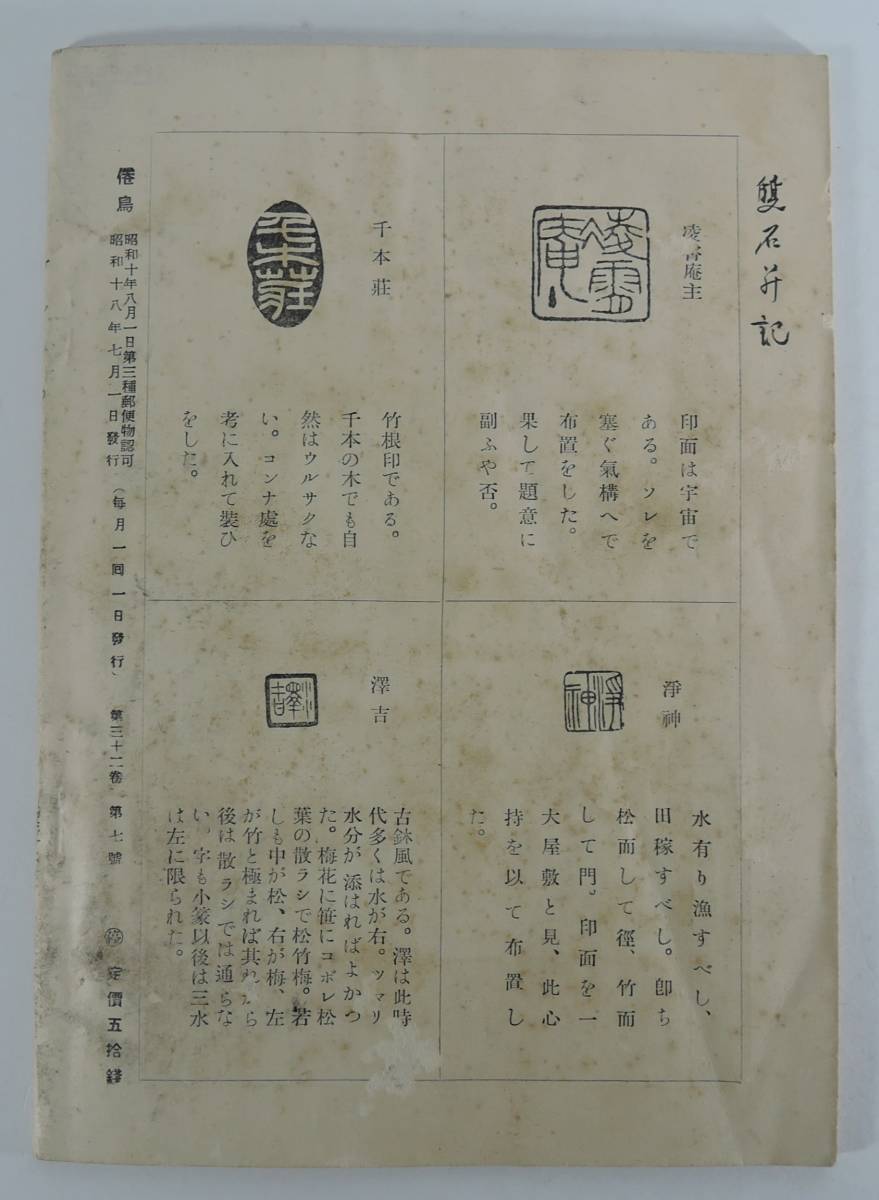 雙石并記
凌霄庵主
印面は宇宙で
ある。ソレを
塞ぐ氣構へで
布置をした。
果して題意に
副ふや否。
千本莊
千本莊
竹根印である。
千本の木でも自
然はウルサクな
い。コンナ處を
考に入れて裝ひ
をした。
淨神
淨神
水有り漁すべし、
田稼すべし。卽ち
松而して徑、竹而
して門。印面を一
大屋敷と見、此心
持を以て布置し
た。
澤吉
澤吉
古鉢風である。澤は此時
代多くは水が右。ツマリ
水分が添はればよかつ
た。梅花に笹にコボレ松
葉の散ラシで松竹梅。若
しも中が松、右が梅、左
が竹と極まれば其れから
後は散ラシでは通らな
い。字も小篆以後は三水
は左に限られた。
倦鳥
昭和十年八月一日第三種郵便物認可
昭和十八年七月一日發行
(每月一回一日發行)
第三十二卷
第七號
停
定價五拾錢